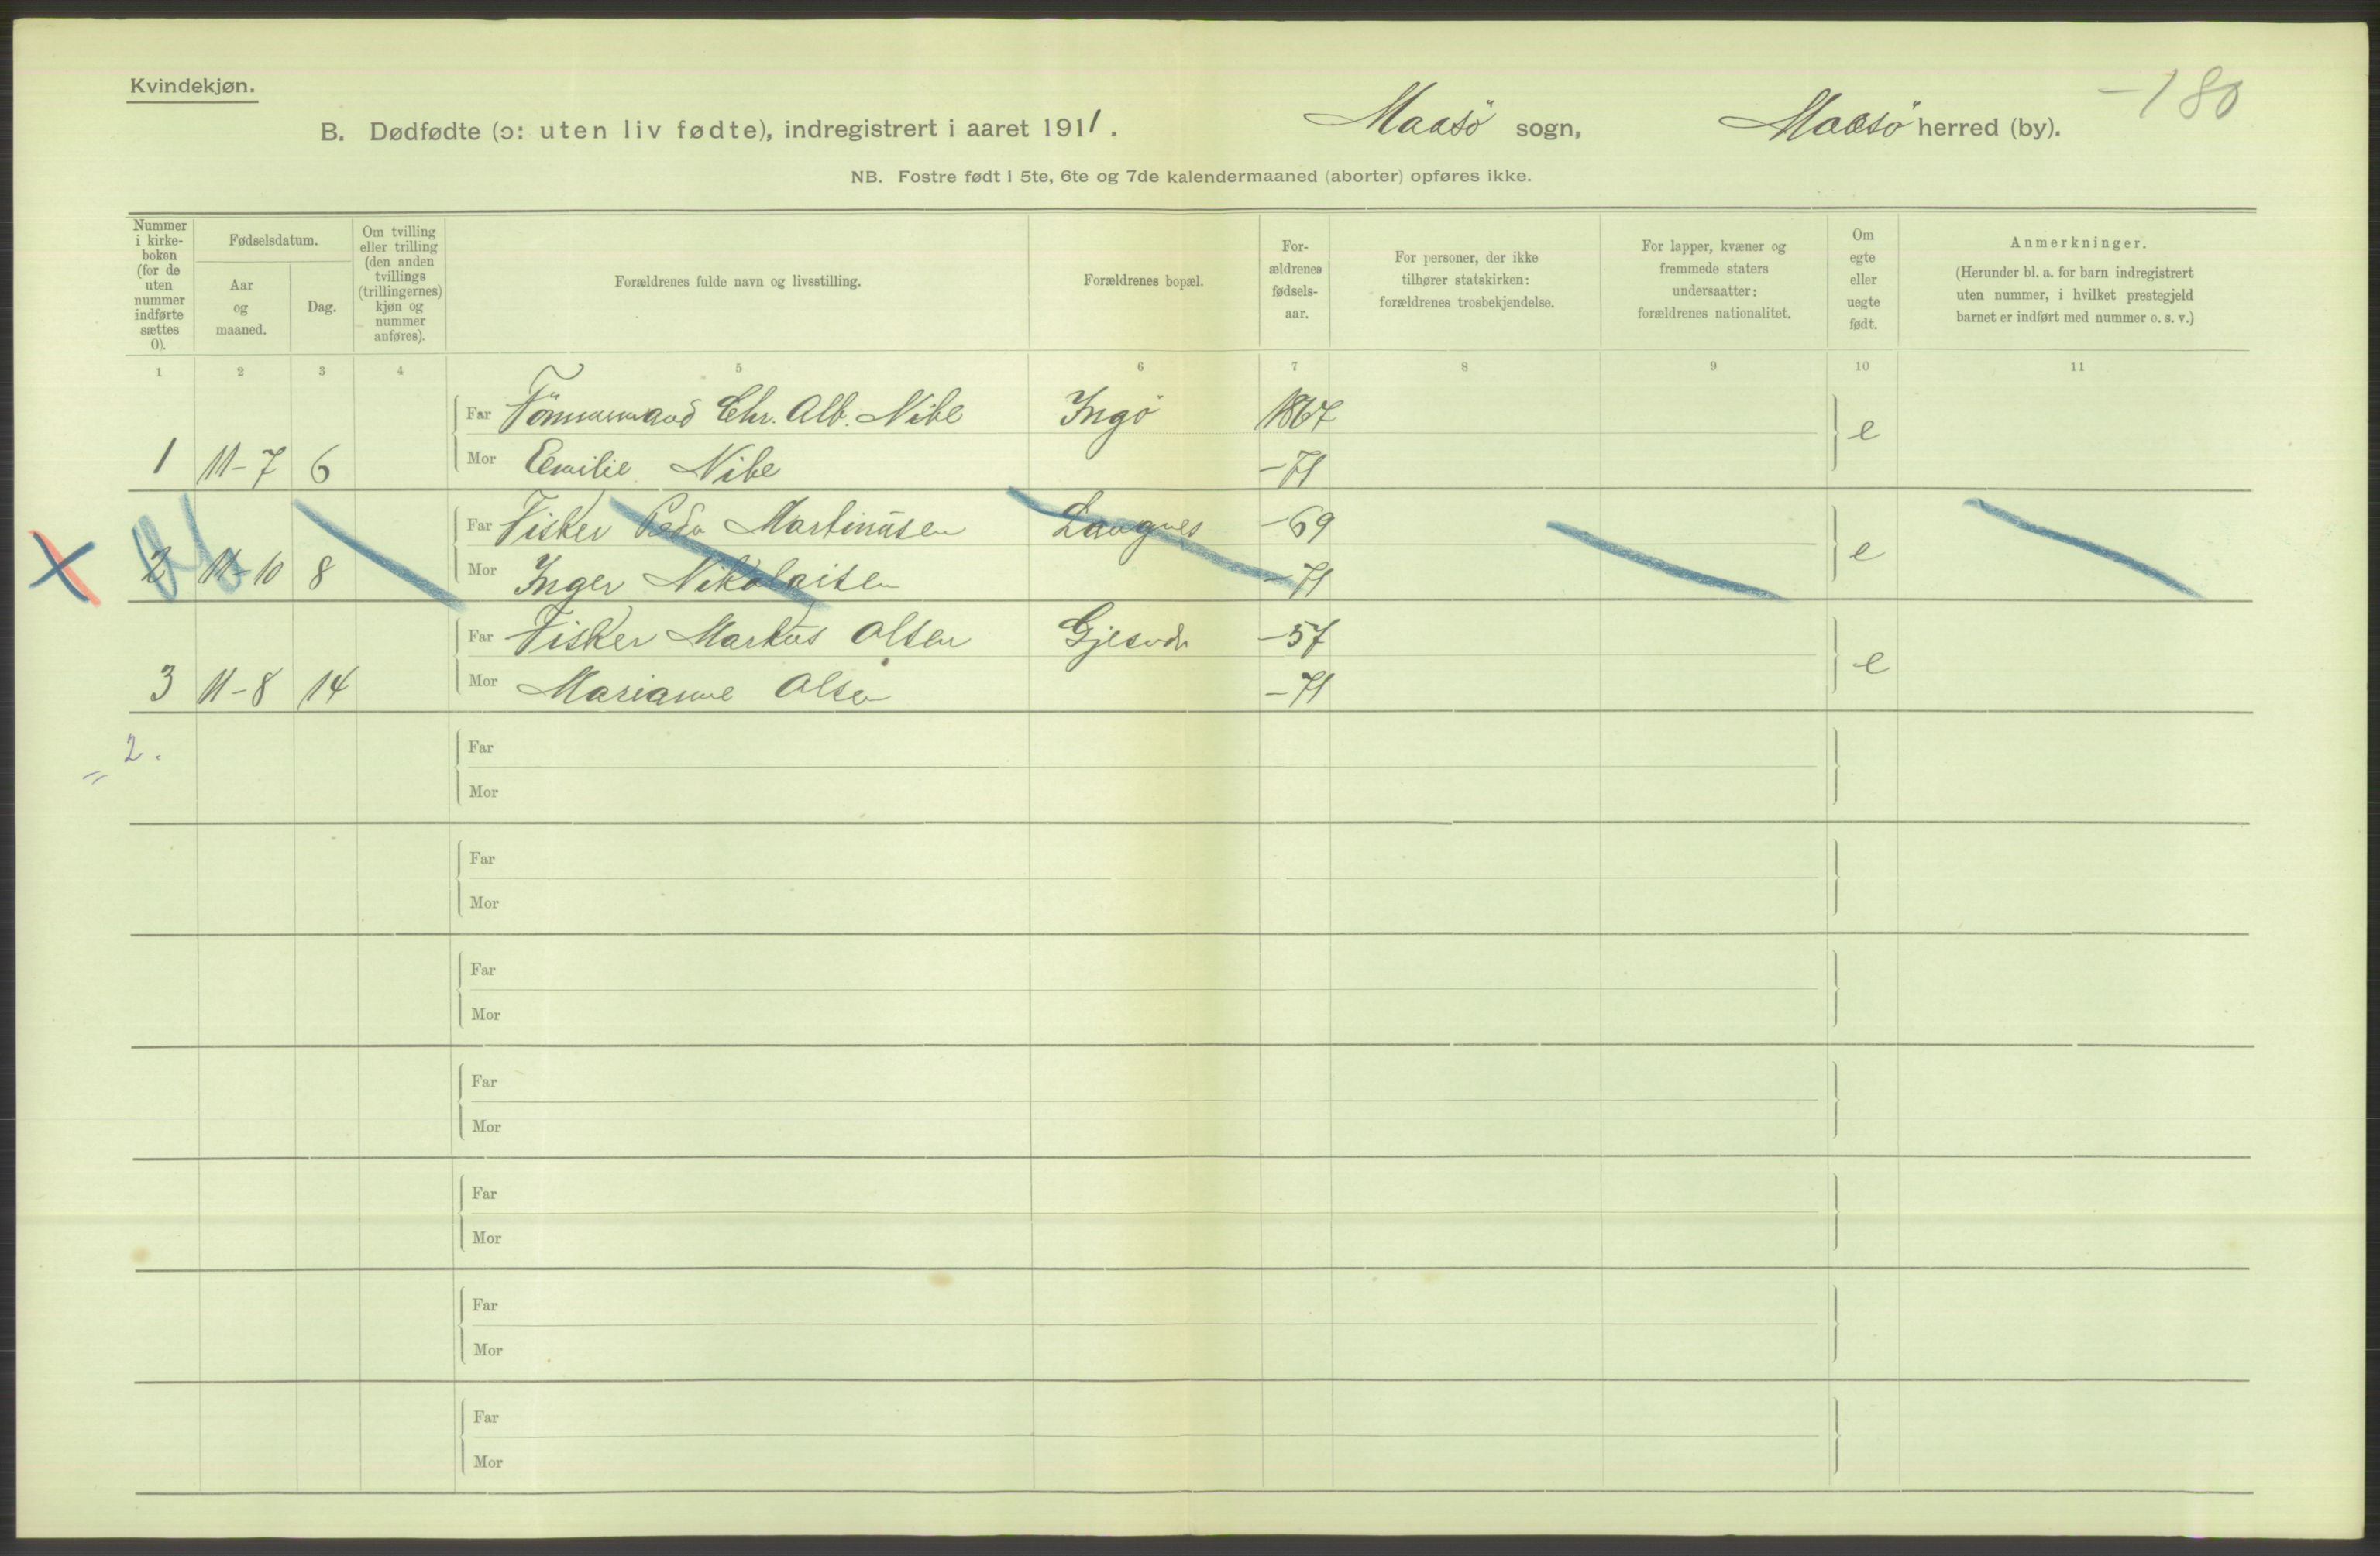 Kvindekjøn.
-180
B. Dødfødte (ɔ: uten liv fødte), indregistrert i aaret 1911. Maasö sogn, Maasö herred (by).
NB. Fostre født i 5te, 6te og 7de kalendermaaned (aborter) opføres ikke.
Nummer
i kirke-
boken
(for de
uten
nummer
indførte
sættes
0).
Fødselsdatum.
Aar
og
maaned.
Dag.
Om tvilling
eller trilling
(den anden
tvillings
(trillingernes)
kjøn og
nummer
anføres).
Forældrenes fulde navn og livsstilling.
Forældrenes bopæl.
For-
ældrenes
fødsels-
aar.
For personer, der ikke
tilhører statskirken:
forældrenes trosbekjendelse.
For lapper, kvæner og
fremmede staters
undersaatter:
forældrenes nationalitet.
Om
egte
eller
uegte
født.
Anmerkninger.
(Herunder bl. a. for barn indregistrert
uten nummer, i hvilket prestegjeld
barnet er indført med nummer o. s. v.)
1 2 3 4 5 6 7 8 9 10 11
Far Tömmermand Chr. Alb. Nibe Ingö 1867
1 11-7 6 Mor Emilie Nibe -71 e
Far Fisker Martinusen Langnes -69
2 11-10 8 Mor Inger Nikolaisen -71 e
Far Fisker Markus Olsen Gjesvær -57
3 11-8 14 Mor Marianne Olsen -71 e
= 2.
Far
Mor
Far
Mor
Far
Mor
Far
Mor
Far
Mor
Far
Mor
Far
Mor